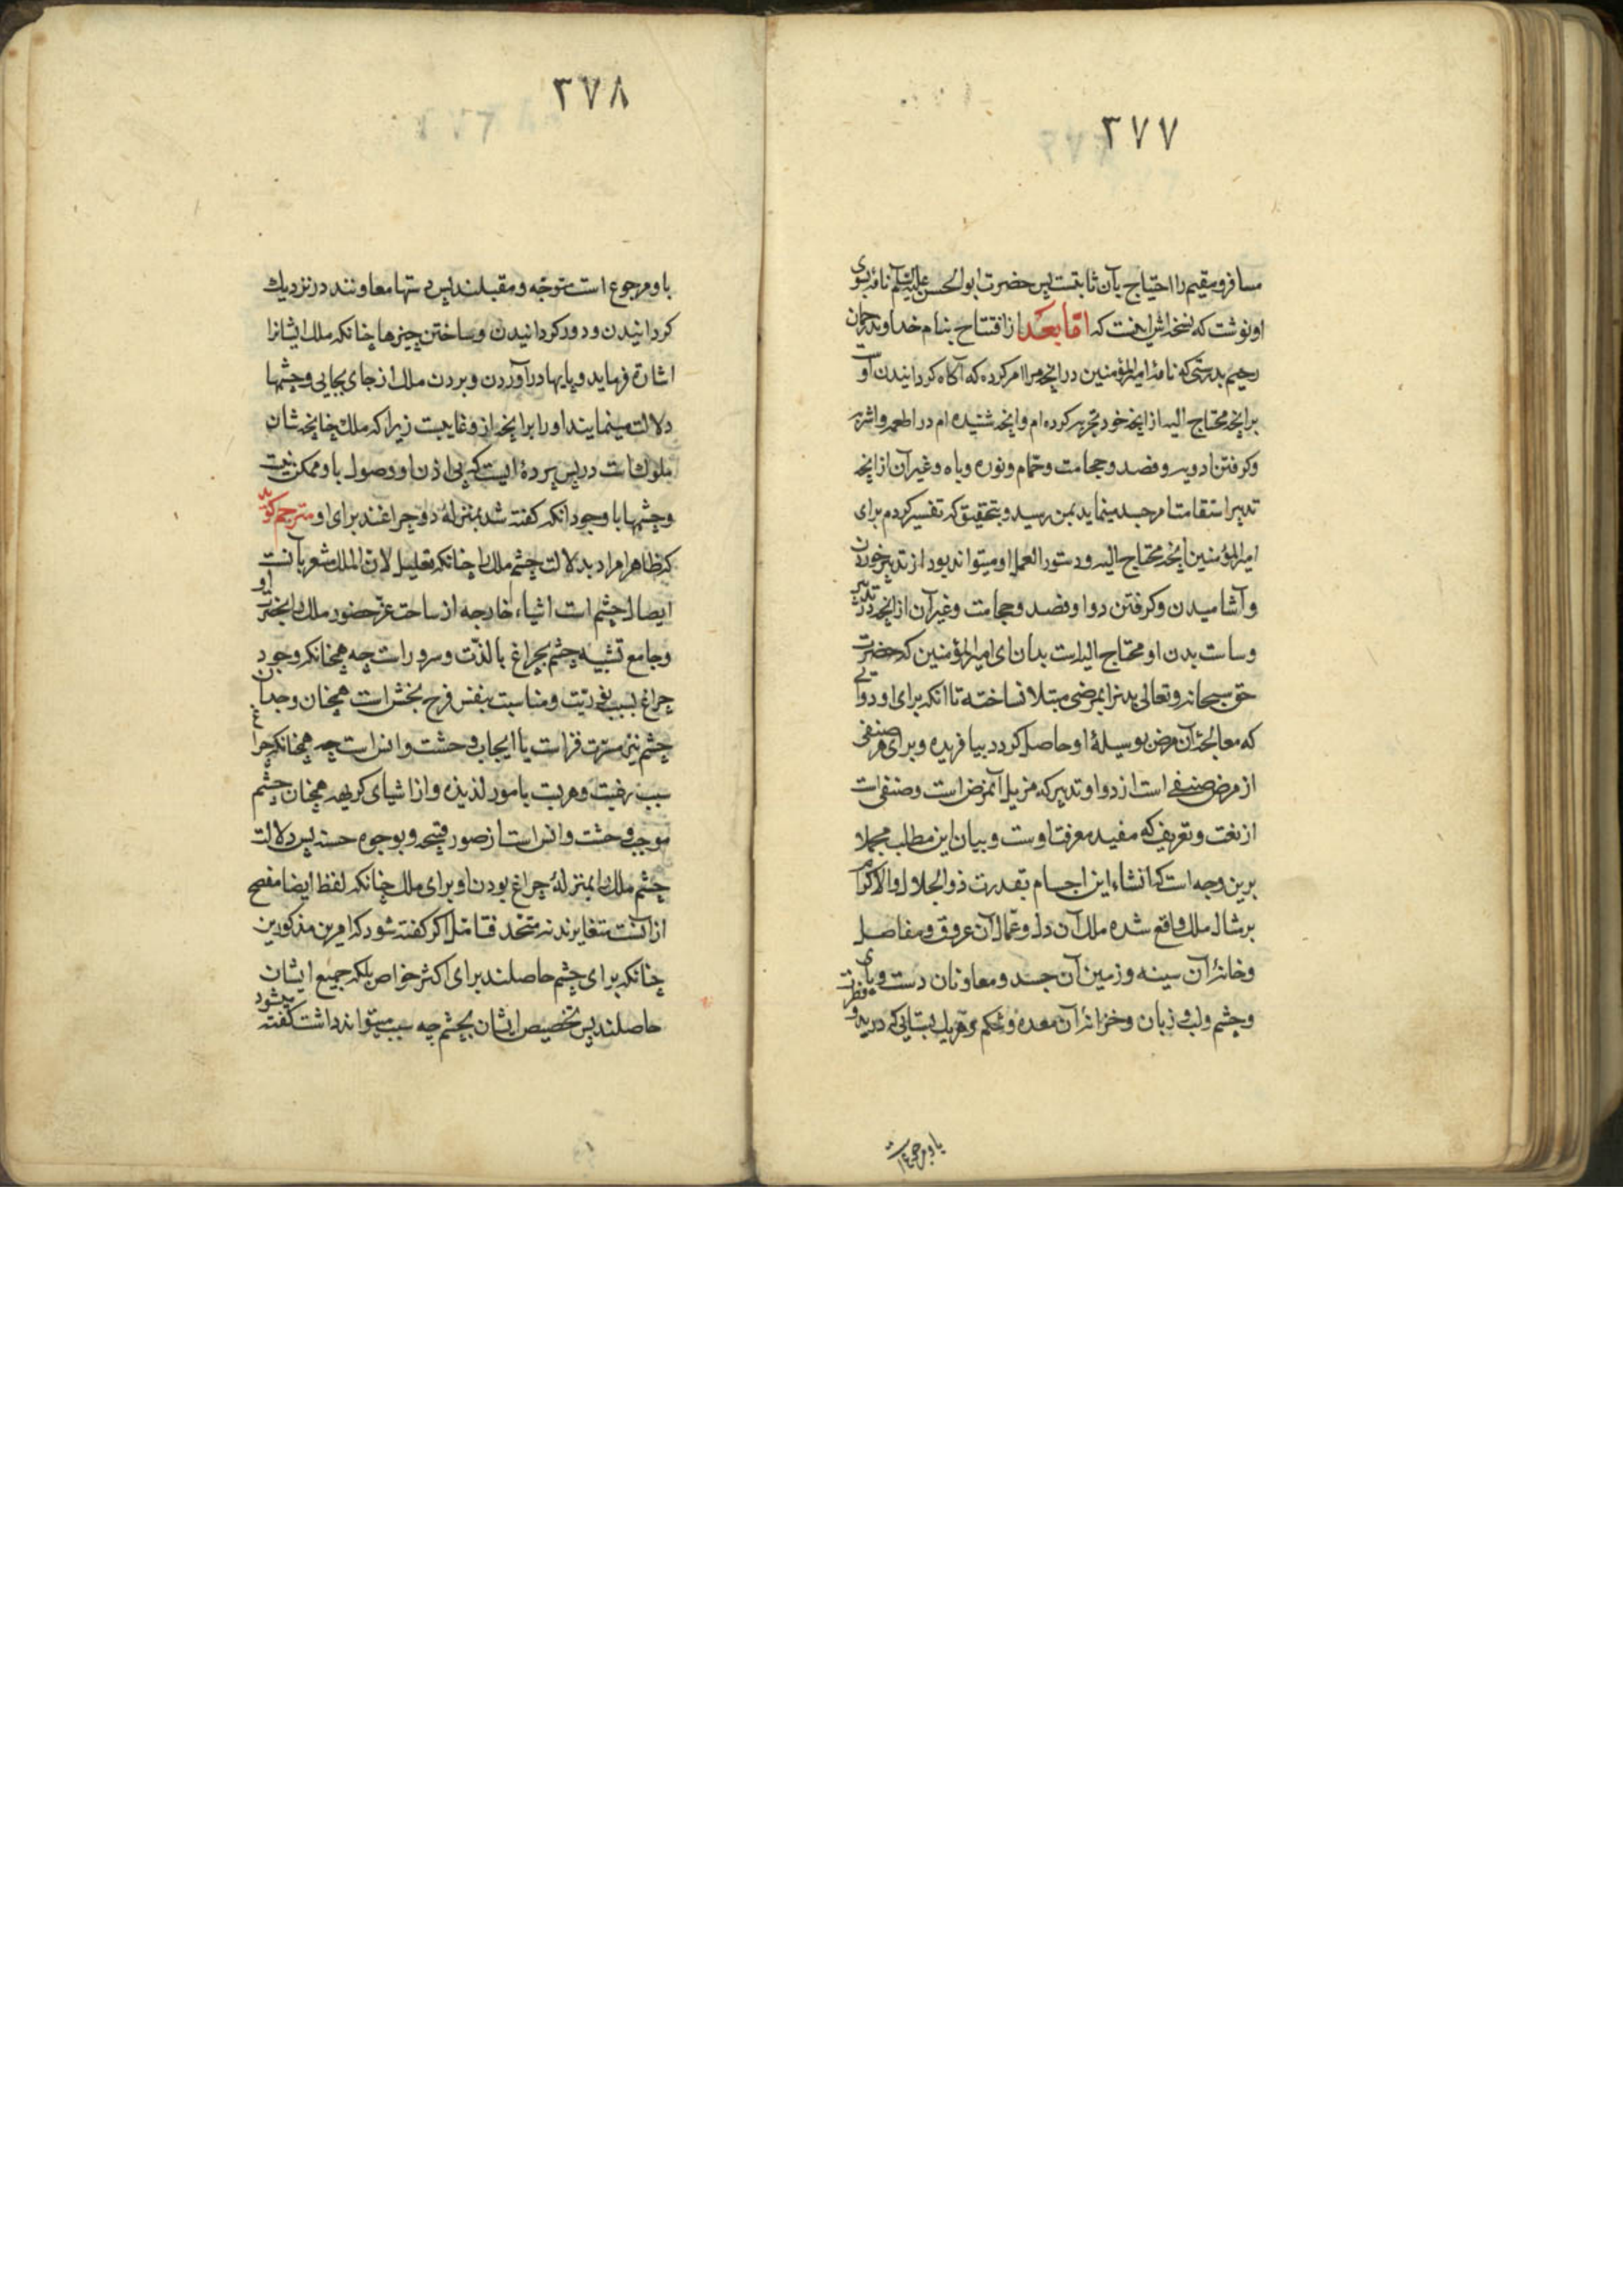 ۳۷۷
مسافر و مقیم را احتیاج بآن ثابتست پس حضرت ابو الحسن علیه السلام نامهٔ بسوی
او نوشت که نسخه‌اش اینست که اما بعد از افتتاح بنام خداوند رحمان
رحیم بدرستی که نامهٔ امیر المؤمنین در آنچه مرا امر کرده که آگاه کردانیدن او
برانچه محتاج الیه از آنچه خود تجربه کرده‌ام و آنچه شنیده‌ام در اطعمه و اشربه
و کرفتن ادویه و فصد و حجامت و حمام و نوره و باه و غیر آن از آنچه
تدبیر استقامت امر جسد مینماید بمن رسید و بتحقیق که تفسیر کردم برای
امیر المؤمنین آنچه محتاج الیه و دستور العمل او میتواند بود از تدبیر خوردن
و آشامیدن و کرفتن دوا و فصد و حجامت و غیر آن از آنچه در تدبیر
و سیاست بدن او محتاج الیه است بدان ای امیر المؤمنین که حضرت
حق سبحانه و تعالی بدنرا بمرضی مبتلا نساخته تا آنکه برای او دوائی
که معالجهٔ آن مرض بوسیلهٔ او حاصل کردد بیافریده و برای هر صنفی
از مرض صنفی است از دوا و تدبیر که مزیل آنمرض است و صنفی است
از نعت و تعریف که مفید معرفت اوست و بیان این مطالب مجملا
برین وجه است که انشاء این اجسام بقدرت ذو الجلال و الاکرام
بر مثال ملک واقع شده ملک آن دل و عمال آن عروق و مفاصل
و خانهٔ آن سینه و زمین آن جسد و معاونان دست و پای
و چشم و لب و زبان و خزانهٔ آن معده و شکم
باو مرجوع است
۳۷۸
باو مرجوع است متوجه و مقبلند پس دستها معاونند در نزدیک
کردانیدن و دور کردانیدن و ساختن چیزها چنانکه ملک ایشانرا
اشارة فرماید و پایها در آوردن و بردن ملک از جای بجایی و چشمها
دلالت مینمایند او را برانچه از و غایبست زیرا که ملک چنانچه شان
ملوک است در پس پرده ایست که بی اذن او وصول باو ممکن نیست
و چشمها با وجود آنکه کفته شد بمنزلهٔ دو چراغند برای او مترجم کوید
که ظاهرا مراد بدلالت چشم ملک را چنانکه تعلیل لان الملک مشعر بآنست
ایصال چشم است اشیاء خارجه از ساحت عز حضور ملک را بحضرت او
و جامع تشبیه چشم بچراغ یا لذت و سرور است چه همچنانکه وجود
چراغ بسبب نوریت و مناسبت بنفس فرح بخش است همچنان وجدان
چشم نیز مسرت فزاست یا ایجاب وحشت و انس است چه همچنانکه چراغ
سبب رغبت و هربت بامور لذیذه و از اشیای کریهه همچنان چشم
موجب وحشت و انس است از صور قبیحه و بوجوه حسنه پس دلالت
چشم ملک را بمنزلهٔ چراغ بودن او برای ملک چنانکه لفظ ایضا مفصح
از آنست متغایرند نه متحد فتامل اکر کفته شود که امرین مذکورین
چنانکه برای چشم حاصلند برای اکثر خواص بلکه جمیع ایشان
حاصلند پس تخصیص ایشان بچشم چه سبب میتواند داشت کفته میشود